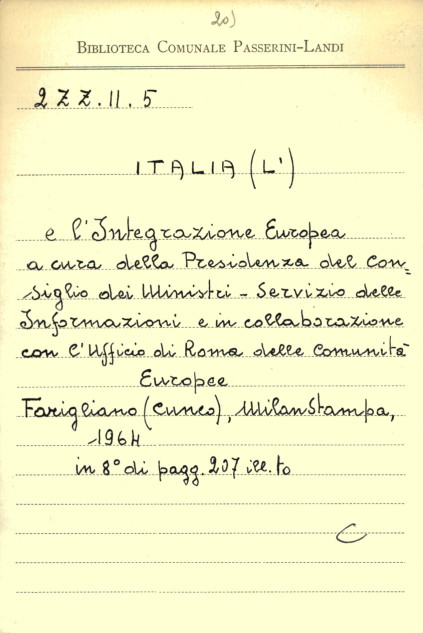 20)
BIBLIOTECA COMUNALE PASSERINI-LANDI
2 Z Z. II. 5
ITALIA (L')
e l'Integrazione Europea
a cura della Presidenza del Con=
siglio dei Ministri - Servizio delle
Informazioni e in collaborazione
con l'Ufficio di Roma delle Comunità
Europee
Farigliano (Cuneo), MilanStampa,
1964
in 8° di pagg. 207 ill.to
C